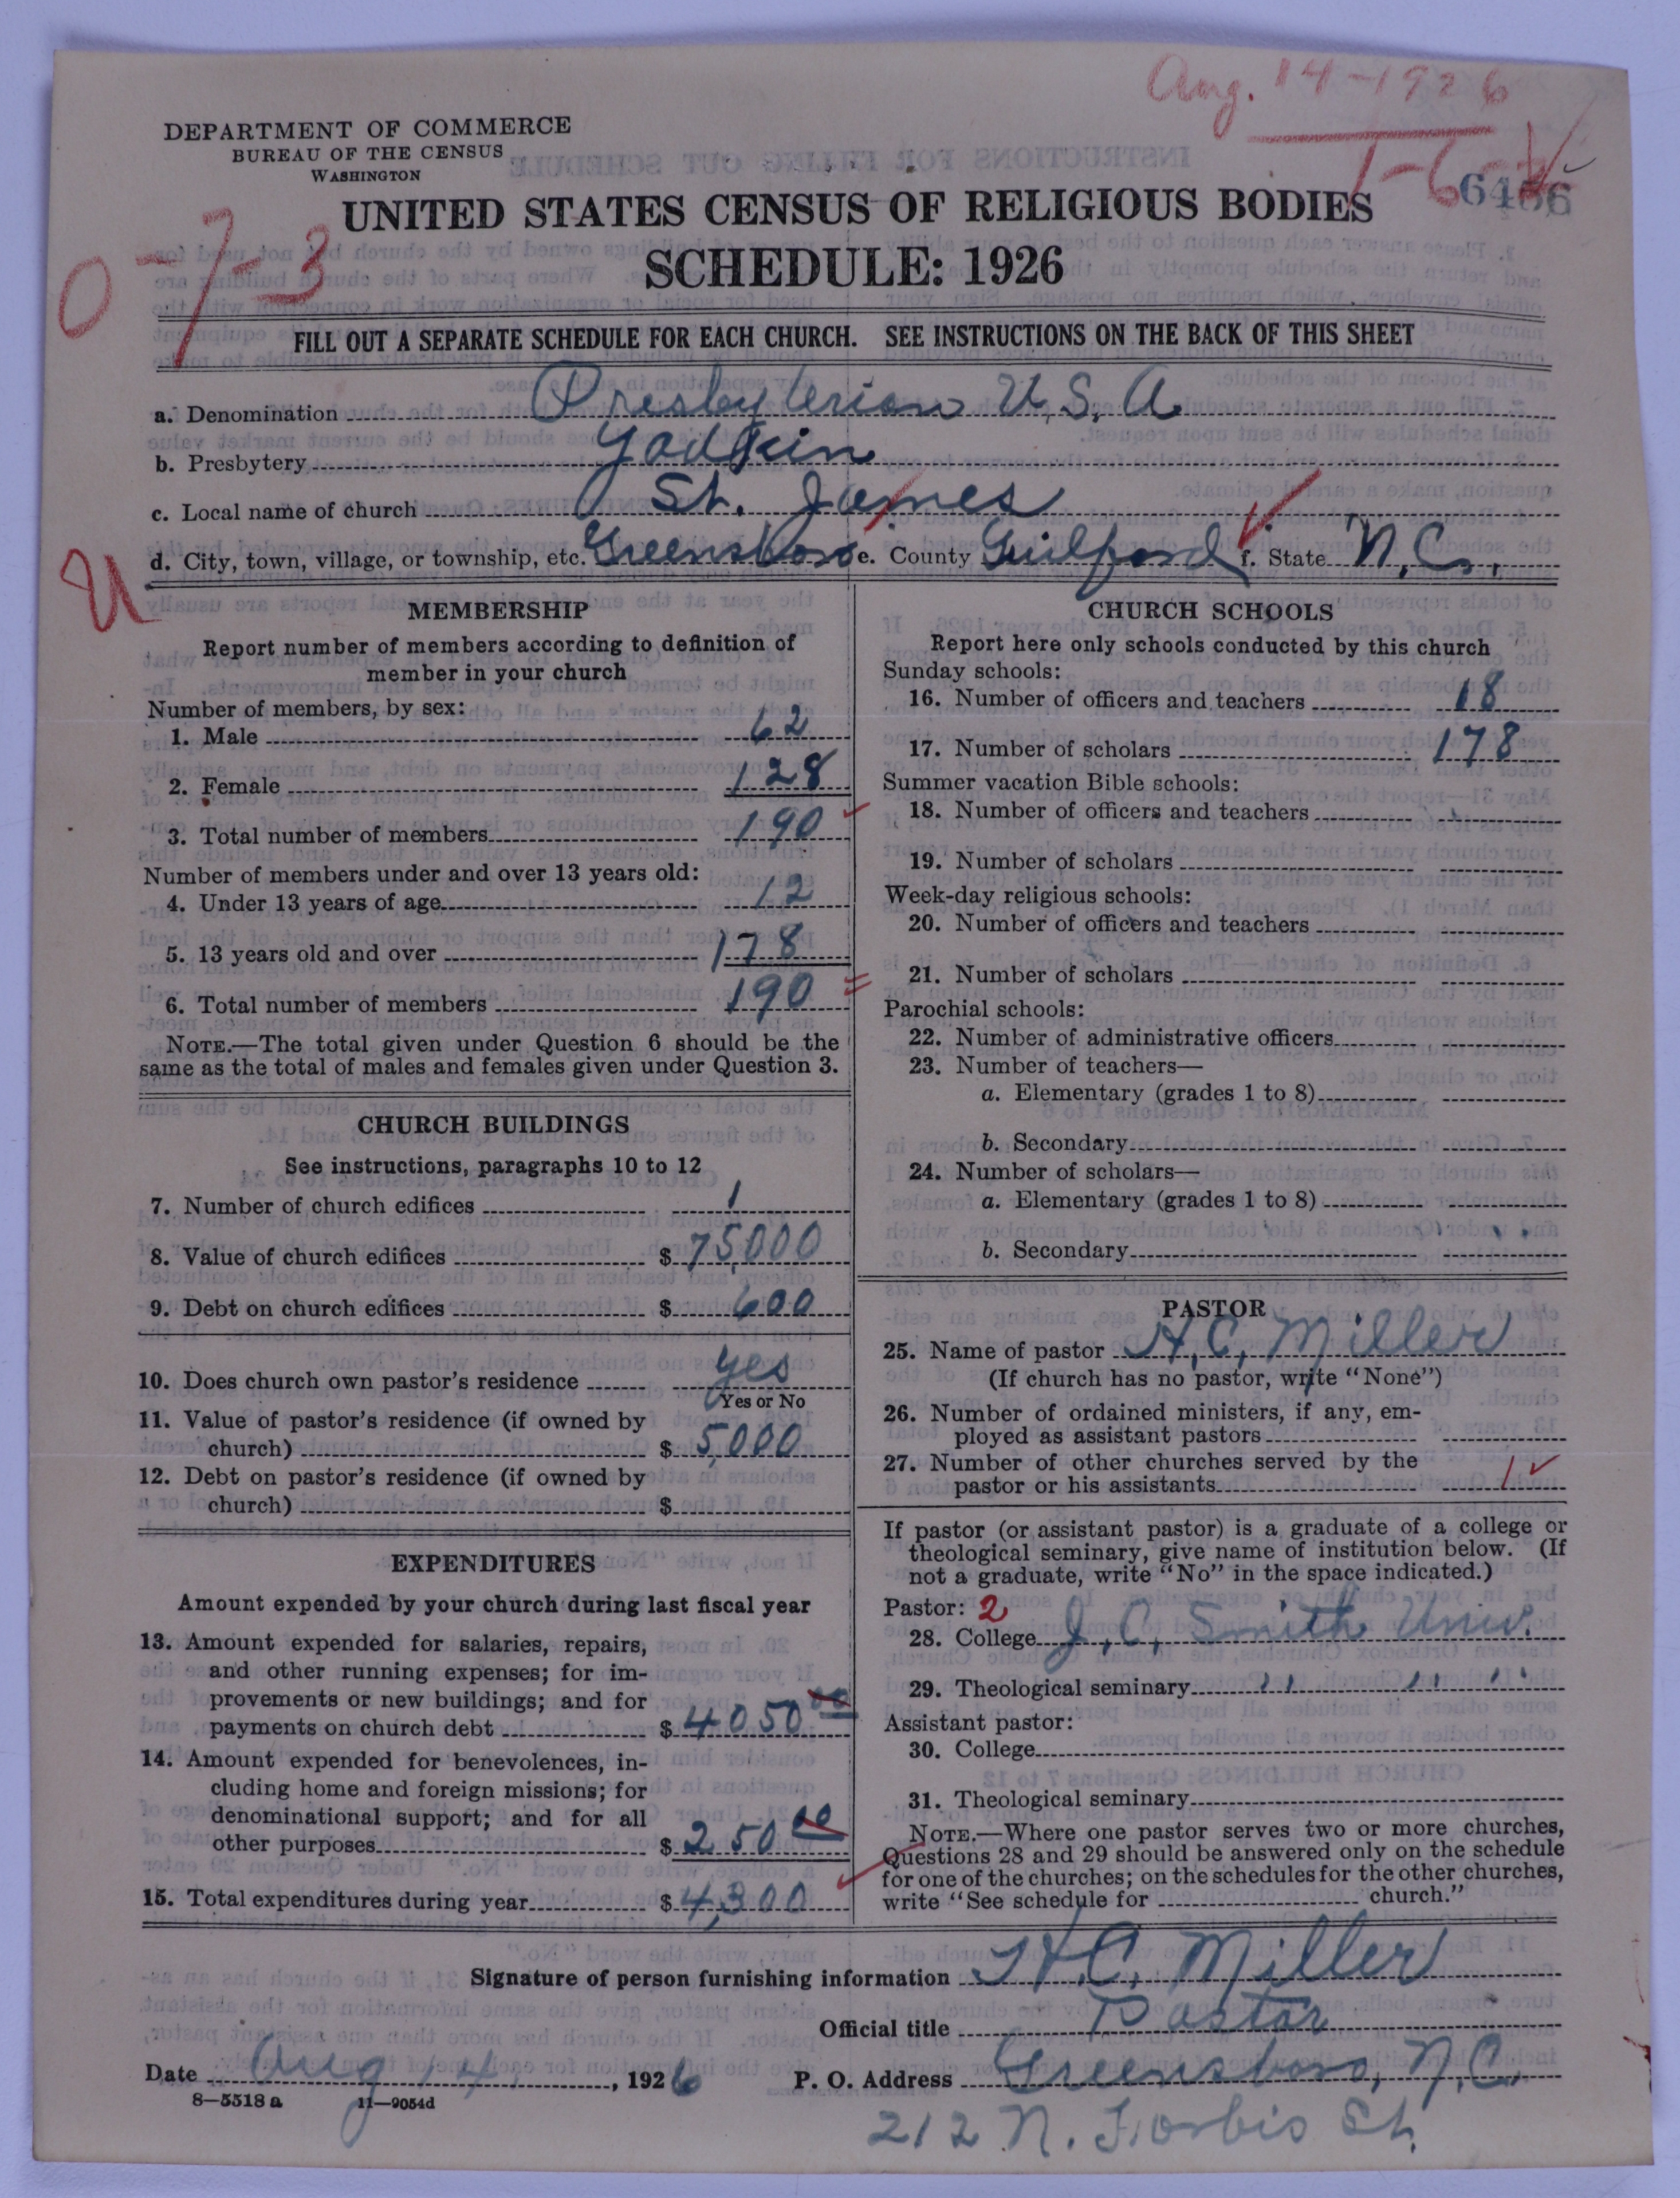 Aug. 14-1926
DEPARTMENT OF COMMERCE
BUREAU OF THE CENSUS
WASHINGTON
UNITED STATES CENSUS OF RELIGIOUS BODIES
0-7-3
SCHEDULE: 1926
FILL OUT A SEPARATE SCHEDULE FOR EACH CHURCH. SEE INSTRUCTIONS ON THE BACK OF THIS SHEET
a. Denomination Presbyterian U.S.A
b. Presbytery Yadkin
c. Local name of church St. James
d. City, town, village, or township, etc. Greensboro e. County Guilford f. State N.C.
U
MEMBERSHIP
Report number of members according to definition of
member in your church
Number of members, by sex:
1. Male 62
2. Female 128
3. Total number of members 190
Number of members under and over 13 years old:
4. Under 13 years of age 12
5. 13 years old and over 178
6. Total number of members 190
NOTE.—The total given under Question 6 should be the
same as the total of males and females given under Question 3.
CHURCH BUILDINGS
See instructions, paragraphs 10 to 12
7. Number of church edifices 1
8. Value of church edifices $ 75,000
9. Debt on church edifices $ 600
10. Does church own pastor's residence yes
Yes or No
11. Value of pastor's residence (if owned by
church) $ 5,000
12. Debt on pastor's residence (if owned by
church) $
EXPENDITURES
Amount expended by your church during last fiscal year
13. Amount expended for salaries, repairs,
and other running expenses; for im-
provements or new buildings; and for
payments on church debt $ 4050 00
14. Amount expended for benevolences, in-
cluding home and foreign missions; for
denominational support; and for all
other purposes $ 250 00
15. Total expenditures during year $ 4,300
CHURCH SCHOOLS
Report here only schools conducted by this church
Sunday schools:
16. Number of officers and teachers 18
17. Number of scholars 178
Summer vacation Bible schools:
18. Number of officers and teachers
19. Number of scholars
Week-day religious schools:
20. Number of officers and teachers
21. Number of scholars
Parochial schools:
22. Number of administrative officers
23. Number of teachers—
a. Elementary (grades 1 to 8)
b. Secondary
24. Number of scholars—
a. Elementary (grades 1 to 8)
b. Secondary
PASTOR
25. Name of pastor H.C. Miller
(If church has no pastor, write "None")
26. Number of ordained ministers, if any, em-
ployed as assistant pastors
27. Number of other churches served by the
pastor or his assistants 1
If pastor (or assistant pastor) is a graduate of a college or
theological seminary, give name of institution below. (If
not a graduate, write "No" in the space indicated.)
Pastor: 2
28. College J. C. Smith Univ.
29. Theological seminary " " "
Assistant pastor:
30. College
31. Theological seminary
NOTE.—Where one pastor serves two or more churches,
Questions 28 and 29 should be answered only on the schedule
for one of the churches; on the schedules for the other churches,
write "See schedule for church."
Signature of person furnishing information H.C. Miller
Official title Pastor
Date Aug 14, 1926 P. O. Address Greensboro, N.C.
8—5518 a 11—9054d
212 N. Forbis St.